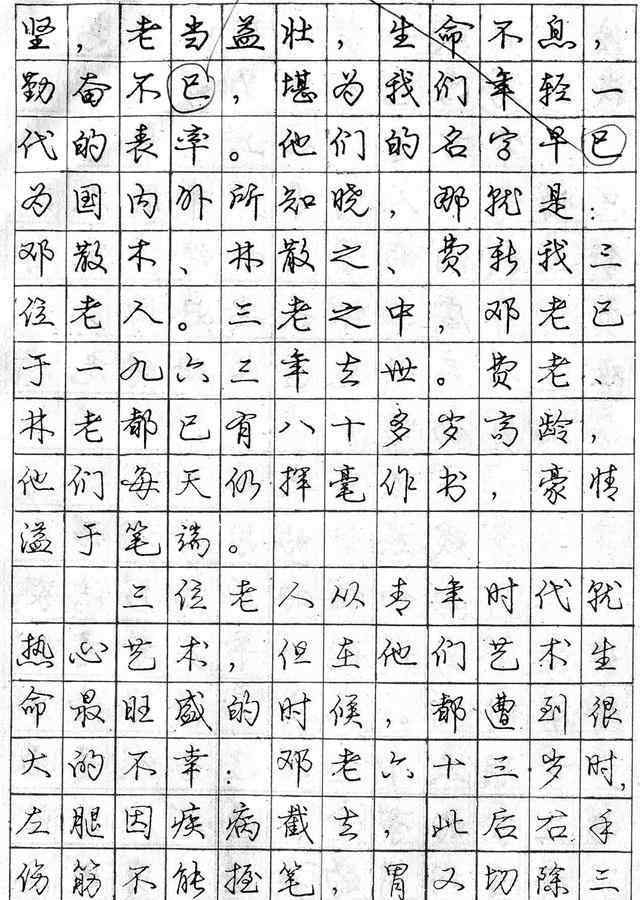 坚，老当益壮，生命不息，
勤奋不已，堪为我们年轻一
代的表率。他们的名字早已
为国内外所知晓，那就是：
邓散木、林散之、费新我三
位老人。三老之中，邓老已
于一九六三年去世。费老、
林老都已有八十多岁高龄，
他们每天仍挥毫作书，豪情
溢于笔端。
三位老人从青年时代就
热心艺术，但在他们艺术生
命最旺盛的时候，都遭到很
大的不幸：邓老六十三岁时，
左腿因疾病截去，此后右手
伤筋不能握笔，胃又切除三